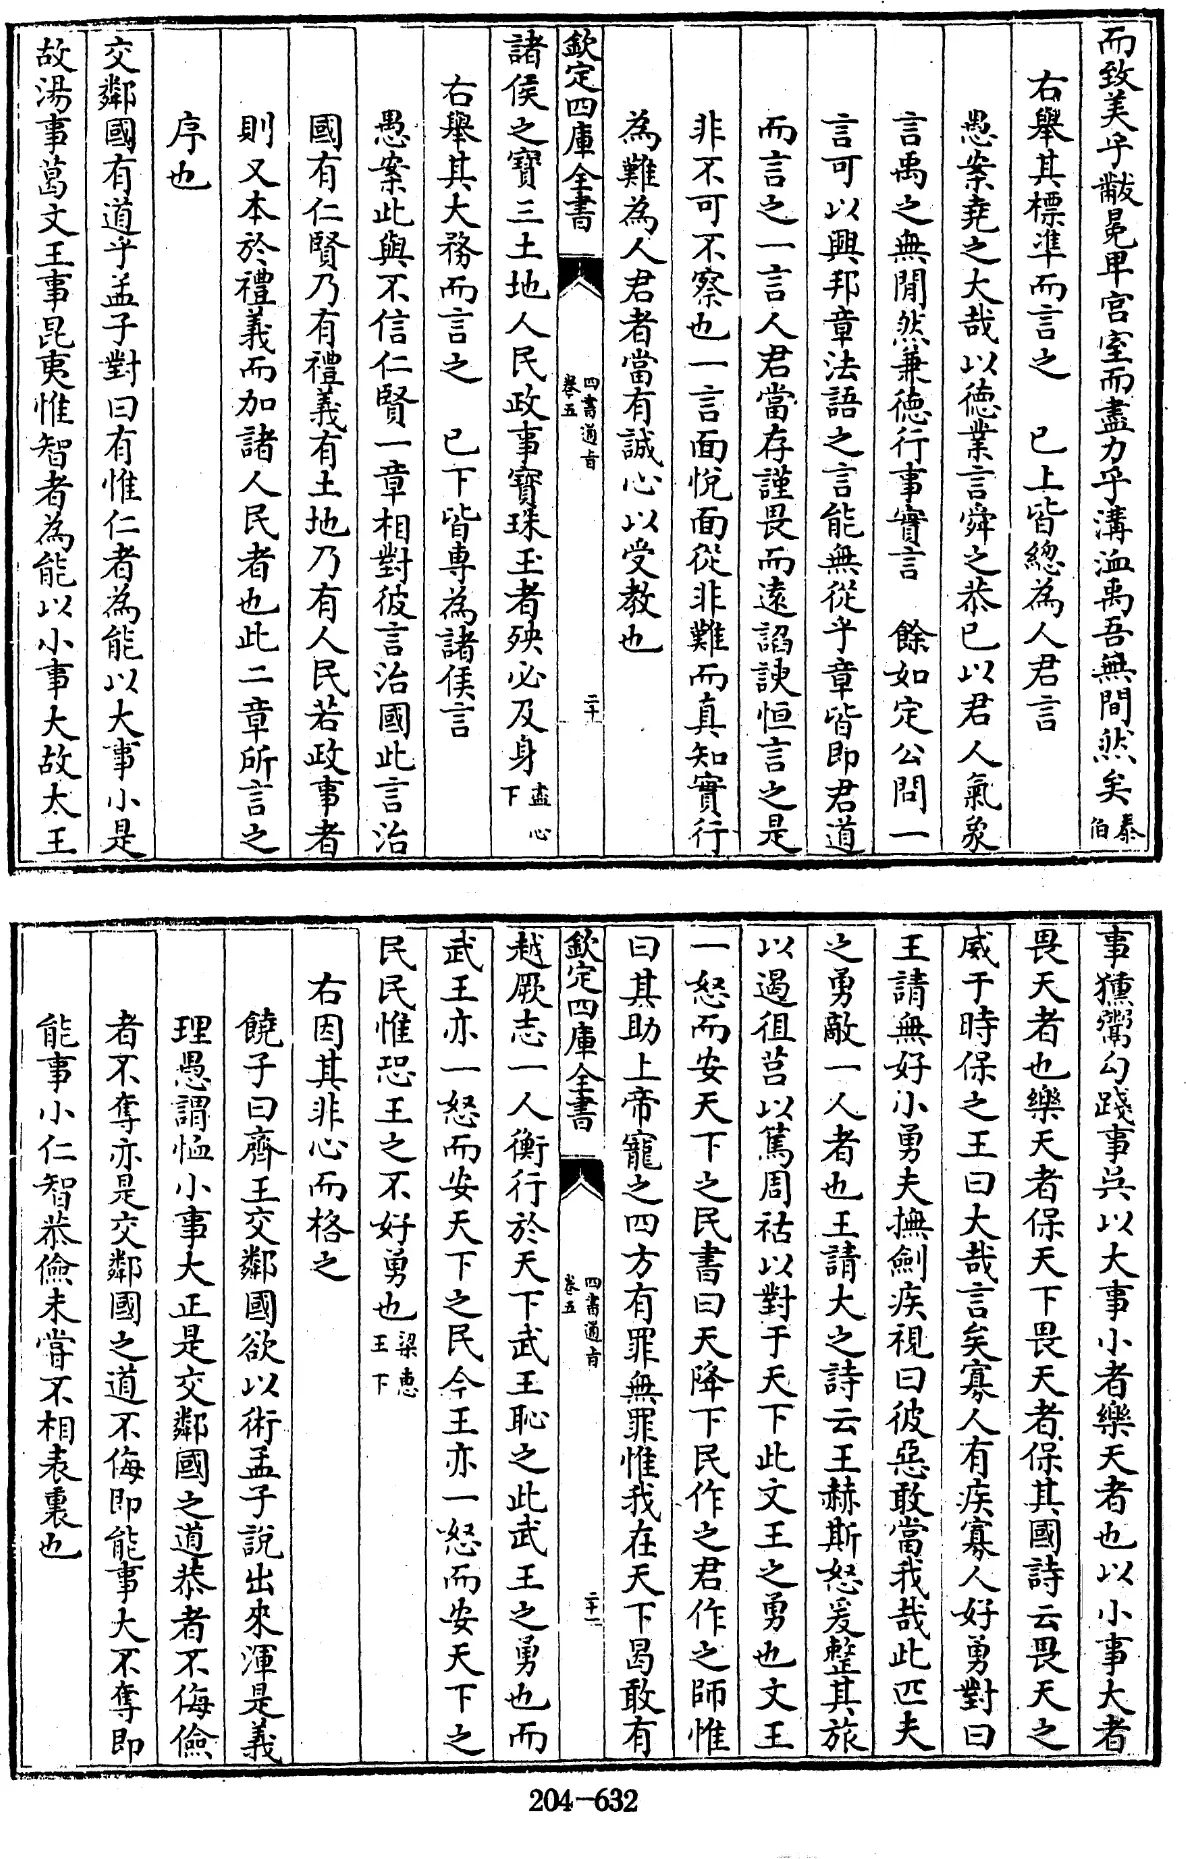 而致美乎黻冕卑宮室而盡力乎溝洫禹吾無間然矣泰伯
右舉其標準而言之　已上皆總為人君言
愚案堯之大哉以德業言舜之恭己以君人氣象
言禹之無間然兼德行事實言　餘如定公問一
言可以興邦章法語之言能無從乎章皆即君道
而言之一言人君當存謹畏而遠諂諛恒言之是
非不可不察也一言面悅面從非難而真知實行
為難為人君者當有誠心以受教也
欽定四庫全書　四書通旨卷五　二十
諸侯之寶三土地人民政事寶珠玉者殃必及身盡心下
右舉其大務而言之　已下皆専為諸侯言
愚案此與不信仁賢一章相對彼言治國此言治
國有仁賢乃有禮義有土地乃有人民若政事者
則又本於禮義而加諸人民者也此二章所言之
序也
交鄰國有道乎孟子對曰有惟仁者為能以大事小是
故湯事葛文王事昆夷惟智者為能以小事大故太王
事獯鬻勾踐事吳以大事小者樂天者也以小事大者
畏天者也樂天者保天下畏天者保其國詩云畏天之
威于時保之王曰大哉言矣寡人有疾寡人好勇對曰
王請無好小勇夫撫劍疾視曰彼惡敢當我哉此匹夫
之勇敵一人者也王請大之詩云王赫斯怒爰整其旅
以遏徂莒以篤周祜以對于天下此文王之勇也文王
一怒而安天下之民書曰天降下民作之君作之師惟
曰其助上帝寵之四方有罪無罪惟我在天下曷敢有
欽定四庫全書　四書通旨卷五　二十一
越厥志一人衡行於天下武王恥之此武王之勇也而
武王亦一怒而安天下之民今王亦一怒而安天下之
民民惟恐王之不好勇也梁惠王下
右因其非心而格之
饒子曰齊王交鄰國欲以術孟子說出來渾是義
理愚謂恤小事大正是交鄰國之道恭者不侮儉
者不奪亦是交鄰國之道不侮即能事大不奪即
能事小仁智恭儉未嘗不相表裏也
204-632